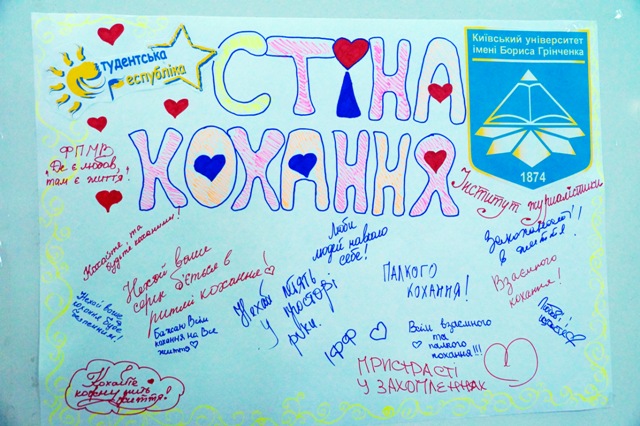 Студентська
республіка
СТІНА
КОХАННЯ
Київський університет
імені Бориса Грінченка
1874
Інститут журналістики
ФПМВ
"Де є любов,
там є життя!"
Кохайте, та
будьте коханими!
Нехай ваше
серце б'ється в
ритмі кохання!
Люби
людей навколо
себе!
Закохайтесь
в життя!
ПАЛКОГО
КОХАННЯ!
Взаємного
кохання!
Нехай ваше
кохання буде
Бажаю Всім
кохання на Все
життя
Нехай
у просторі
руки.
ІФФ
Всім взаємного
та
палкого
кохання!!!
Любові!
ПРИСТРАСТІ
У ЗАХОПЛЕННЯХ
Кохайте
кожну мить
життя!